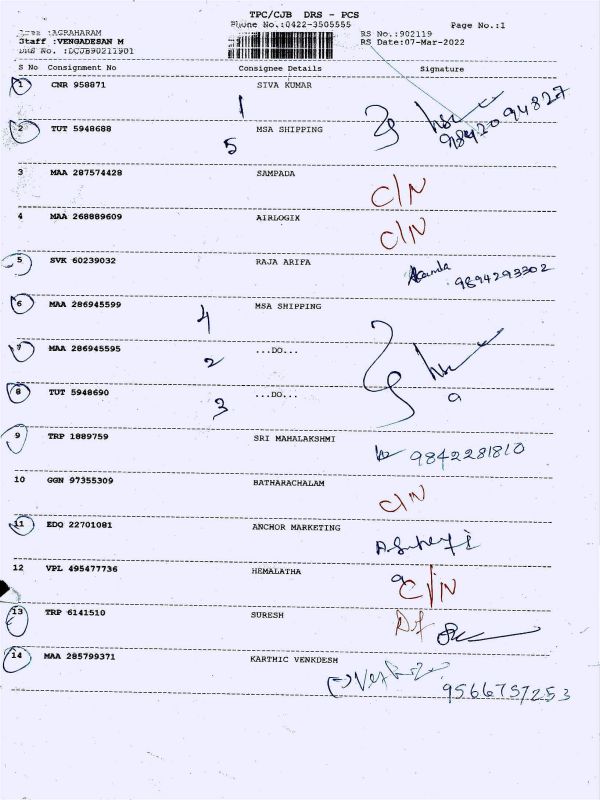 TPC/CJB DRS - PCS
Phone No.:0422-3505555 Page No.:1
:AGRAHARAM RS No.:902119
Staff :VENGADESAN M RS Date:07-Mar-2022
DRS No. :DCJB90211901
S No Consignment No Consignee Details Signature
1 CNR 958871 SIVA KUMAR
1
2 TUT 5948688 MSA SHIPPING 9842094827
5
3 MAA 287574428 SAMPADA
C/N
4 MAA 268889609 AIRLOGIK
C/N
5 SVK 60239032 RAJA ARIFA
9894293302
6 MAA 286945599 MSA SHIPPING
4
7 MAA 286945595 ...DO...
2
8 TUT 5948690 ...DO...
3
9 TRP 1889759 SRI MAHALAKSHMI
9842281810
10 GGN 97355309 BATHARACHALAM
C/N
11 EDQ 22701081 ANCHOR MARKETING
12 VPL 495477736 HEMALATHA
C/N
13 TRP 6141510 SURESH
14 MAA 285799371 KARTHIC VENKDESH
9566757253